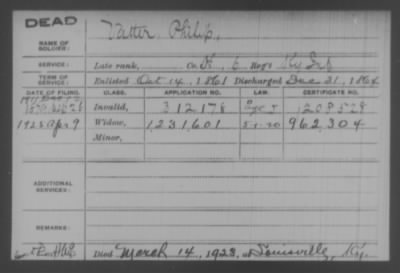 DEAD
NAME OF SOLDIER: Vatter, Philip,
SERVICE: Late rank, Co. H, 6 Reg't Ky Inf
TERM OF SERVICE: Enlisted Oct 14, 1861 Discharged Dec 31, 1864
DATE OF FILING. CLASS. APPLICATION NO. LAW. CERTIFICATE NO.
Invalid, 312178
1923 Apr 9 Widow, 1,231,601 5-1-20 962,304
Minor,
ADDITIONAL SERVICES:
REMARKS:
Died March 14, 1923, at Louisville, Ky.